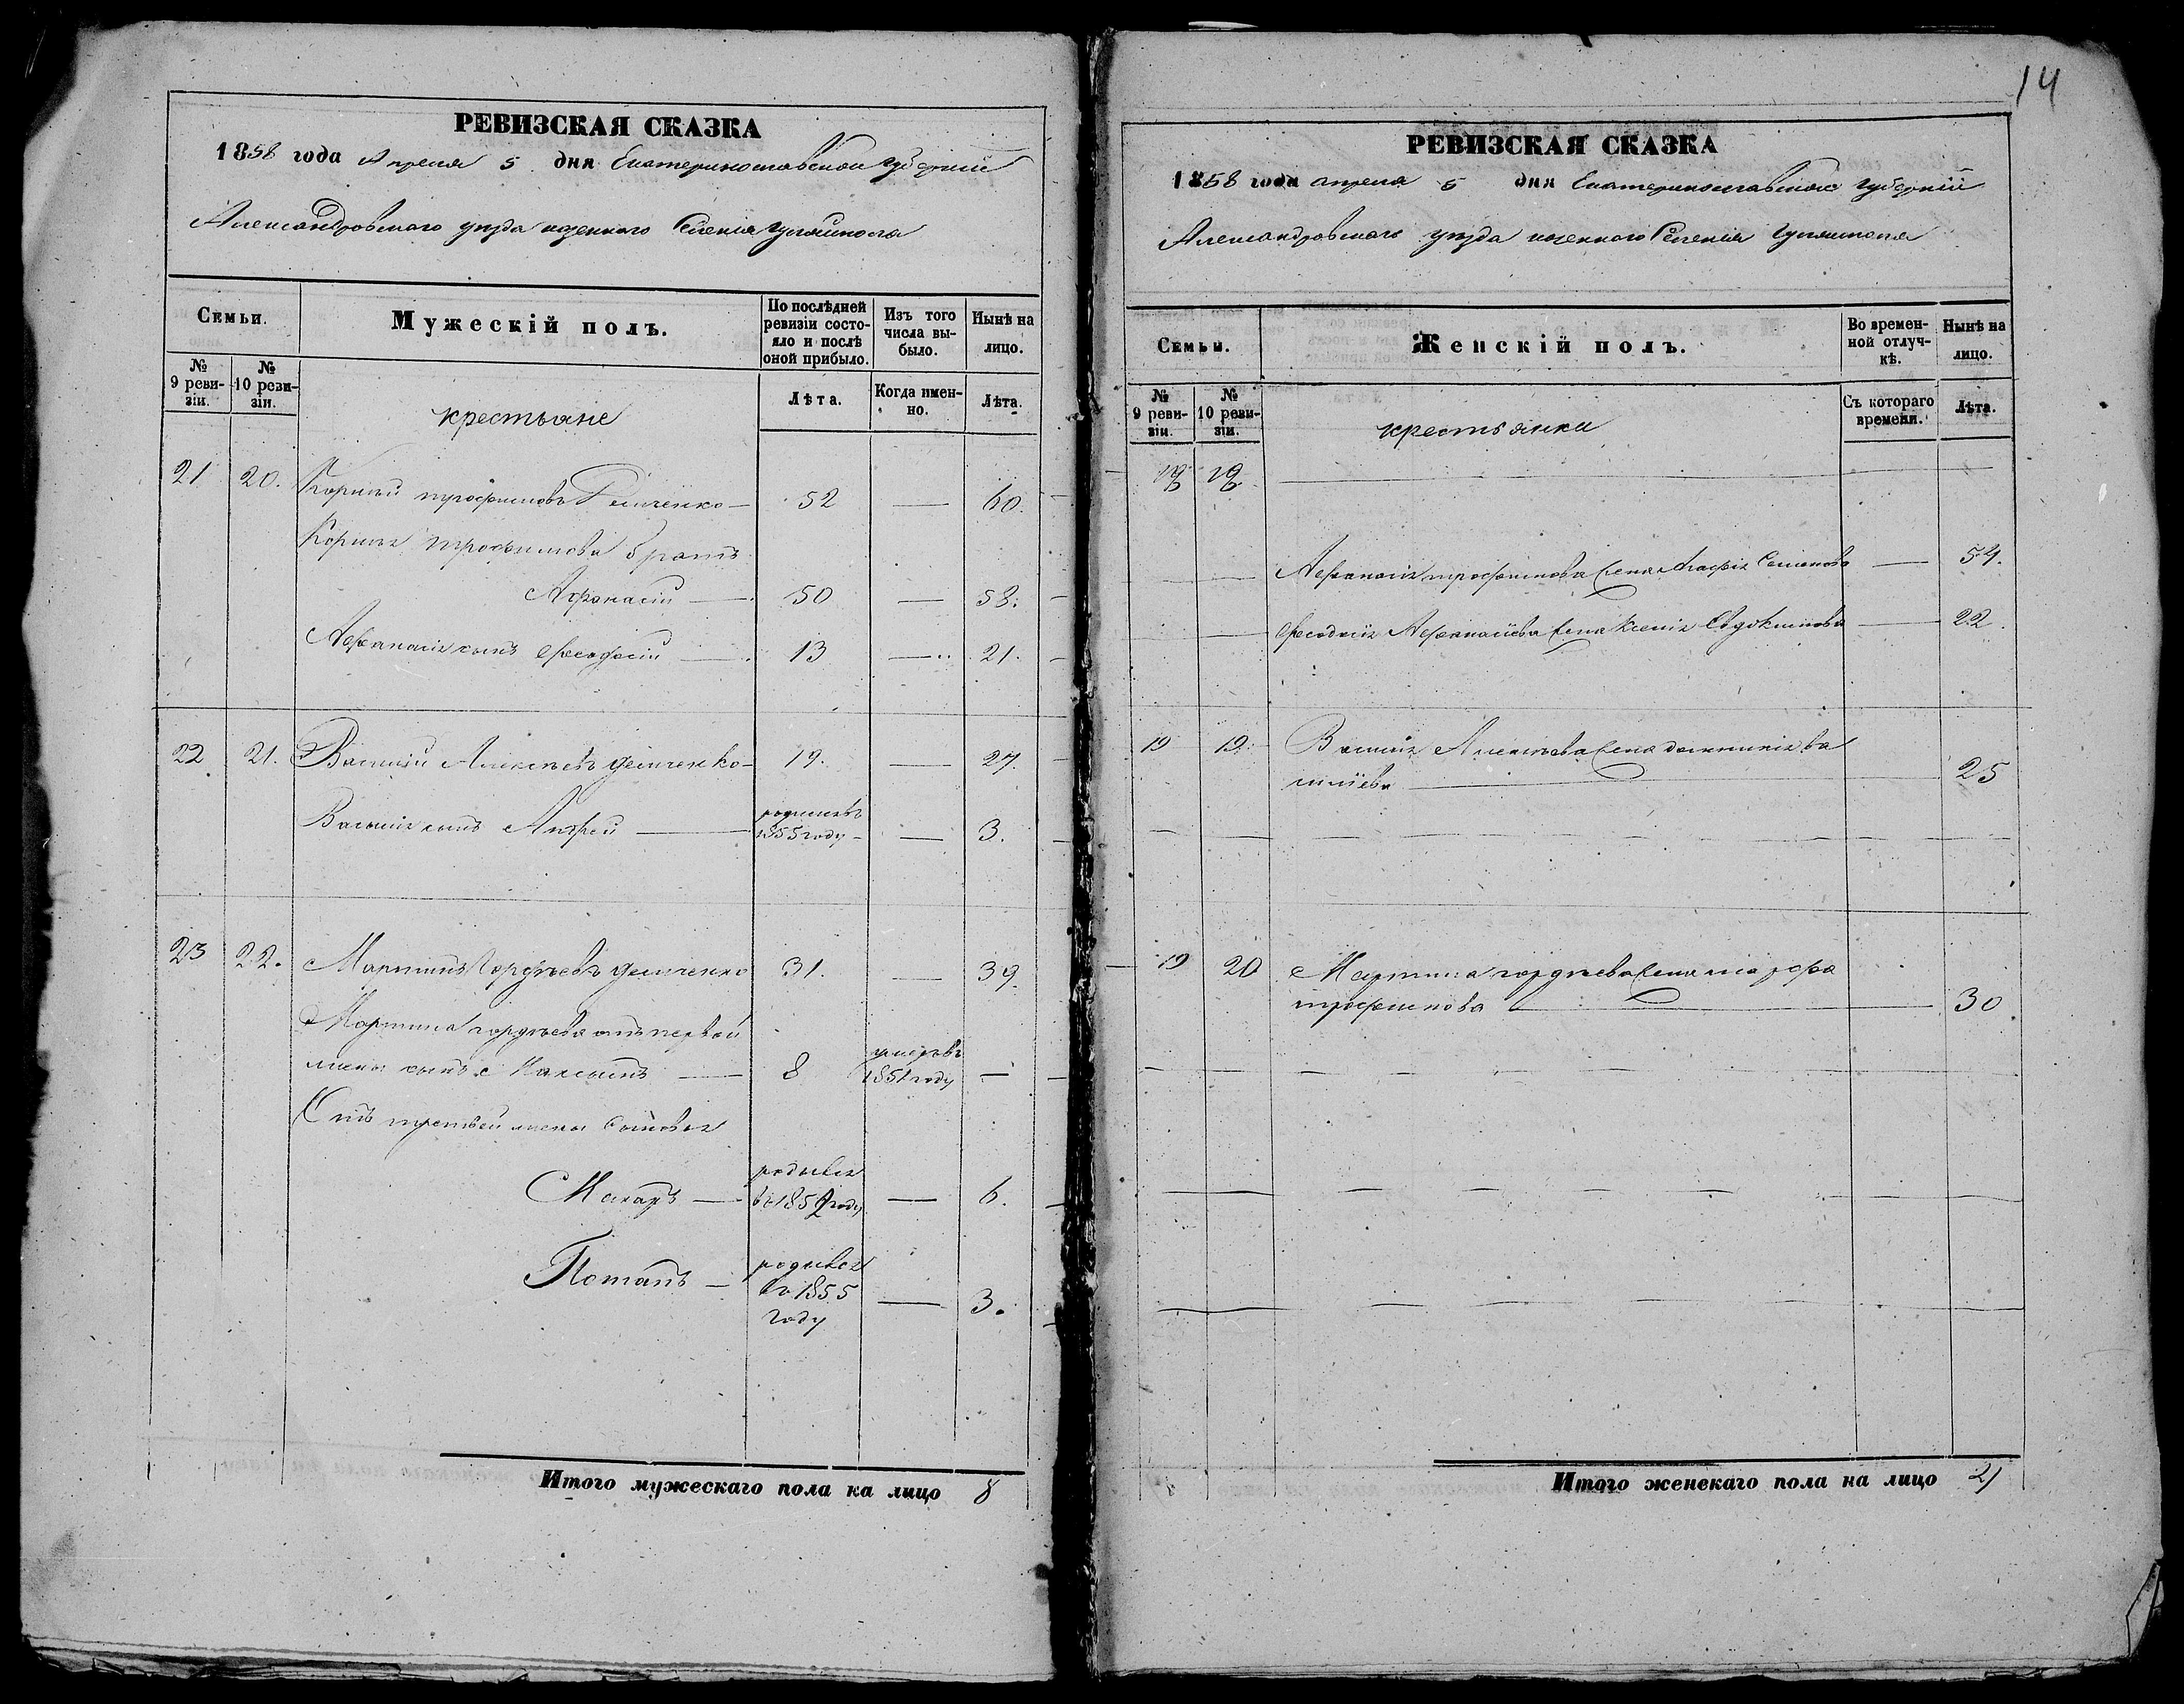 14
РЕВИЗСКАЯ СКАЗКА
1858 года Апреля 5 дня Екатеринославской губернии
Александровского уезда казенного Селения Гуляйполя
Семьи.
Мужескій полъ.
По послѣдней ревизіи состояло и послѣ оной прибыло.
Изъ того числа выбыло.
Нынѣ на лицо.
№ 9 ревизіи.
№ 10 ревизіи.
крестьяне
Лѣта.
Когда именно.
Лѣта.
21 20. Корней трофимовъ 52 — 60.
Корнея трофимова братъ
Афанасий — 50 — 58.
Афанасия сынъ Феодосий — 13 — 21.
22 21. Василий Алексеевъ демченко 19. — 27.
Василия сынъ Андрей — родился въ 1855 году — 3.
23 22. Мартинъ Гордеевъ демченко 31. — 39.
Мартина гордеева отъ первой
жены сынъ Максымъ — 8 умеръ въ 1851 году —
Отъ третьей жены сыновья
Макаръ — родився въ 1852 году — 6.
Потапъ — родився въ 1855 году — 3.
Итого мужескаго пола на лицо 8
РЕВИЗСКАЯ СКАЗКА
1858 года апреля 5 дня Екатеринославской губернии
Александровского уезда казенного Селения Гуляйполя
Семьи.
Женскій полъ.
Во временной отлучкѣ.
Нынѣ на лицо.
№ 9 ревизіи.
№ 10 ревизіи.
крестьянки
Съ котораго времени.
Лѣта.
Афанасия трофимова жена Агафия Семенова — 54.
Феодосия Афанасиева жена Ксения Евдокимова — 22.
19 19. Василия Алексеева жена домникия ва
силиева — 25
19 20 Мартина гордеева жена марфа
трофимова — 30
Итого женскаго пола на лицо 4